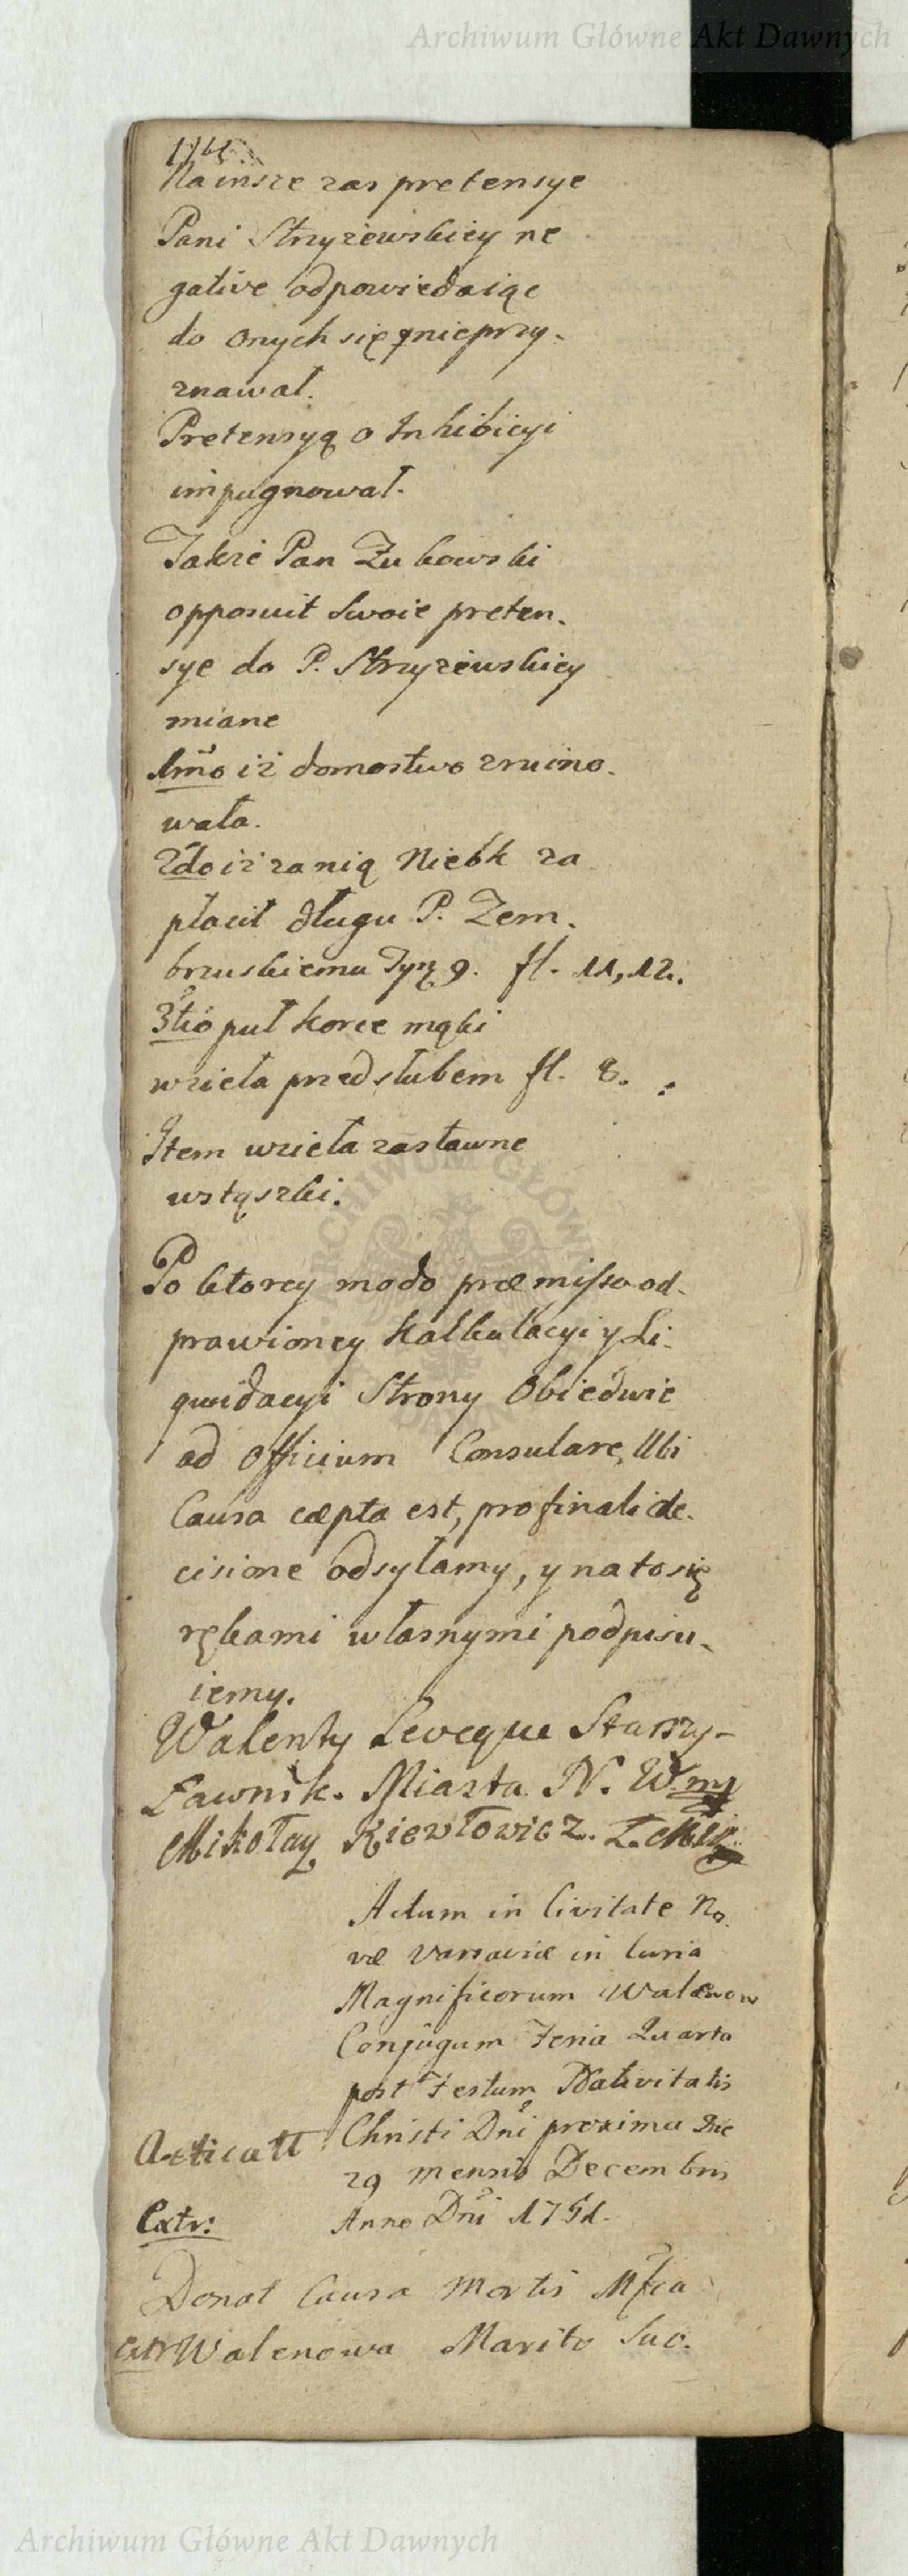 Archiwum Główne Akt Dawnych
Na insze zas pretensye
Pani Strzyżewskiey ne
gative odpowiedaiąc
do onych się nieprzy-
znawał.
Pretensyą o Inhibicyi
impugnował.
Takze Pan Żukowski
opposuit Swoie preten-
sye do P. Strzyżewskiey
miane
1mo iż domostwo zruino-
wała.
2do iż za nią Niebk za
płacił długu P. Zem-
brzuskiemu Tyn 9. fl. 11,12.
3tio puł korce mąki
wzieła przed slubem fl. 8.
Item wzieła zastawne
wstąszki.
Po ktorey modo præmisso od-
prawioney Kalkulacyi y Li-
quidacyi Strony Obiedwie
ad Officium Consulare, Ubi
Causa cæpta est, pro finali de-
cisione odsyłamy, y na to się
rękami własnymi podpisu-
iemy.
Walenty Leveque Starszy-
Ławnik. Miasta N. W. mp
Mikołay Kiewłowicz. Ł.
Actum in Civitate No-
væ Varsaviæ in Curia
Magnificorum Walenow
Conjugum Feria Quarta
post Festum Nativitatis
Christi Dni proxima Die
29 mensis Decembris
Anno Dni 1751.
Acticatt
Extr:
Donat Causa Mortis Mfca
Extr Walenowa Marito Suo.
Archiwum Główne Akt Dawnych